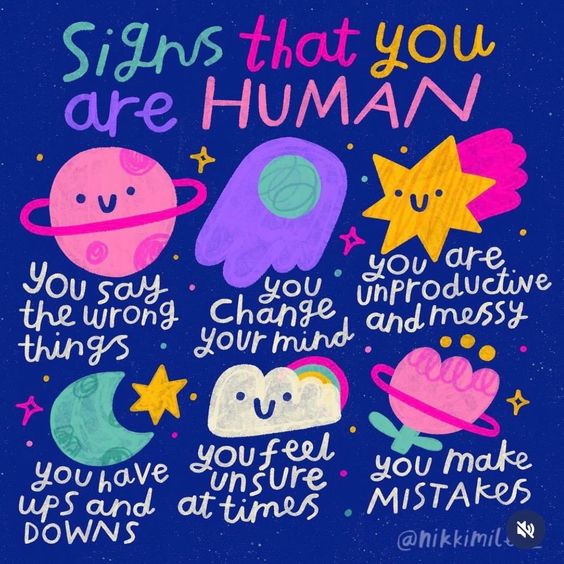 Signs that you
are HUMAN
you say
the wrong
things
you
change
your mind
you are
unproductive
and messy
you have
ups and
DOWNS
you feel
unsure
at times
you make
MISTAKES